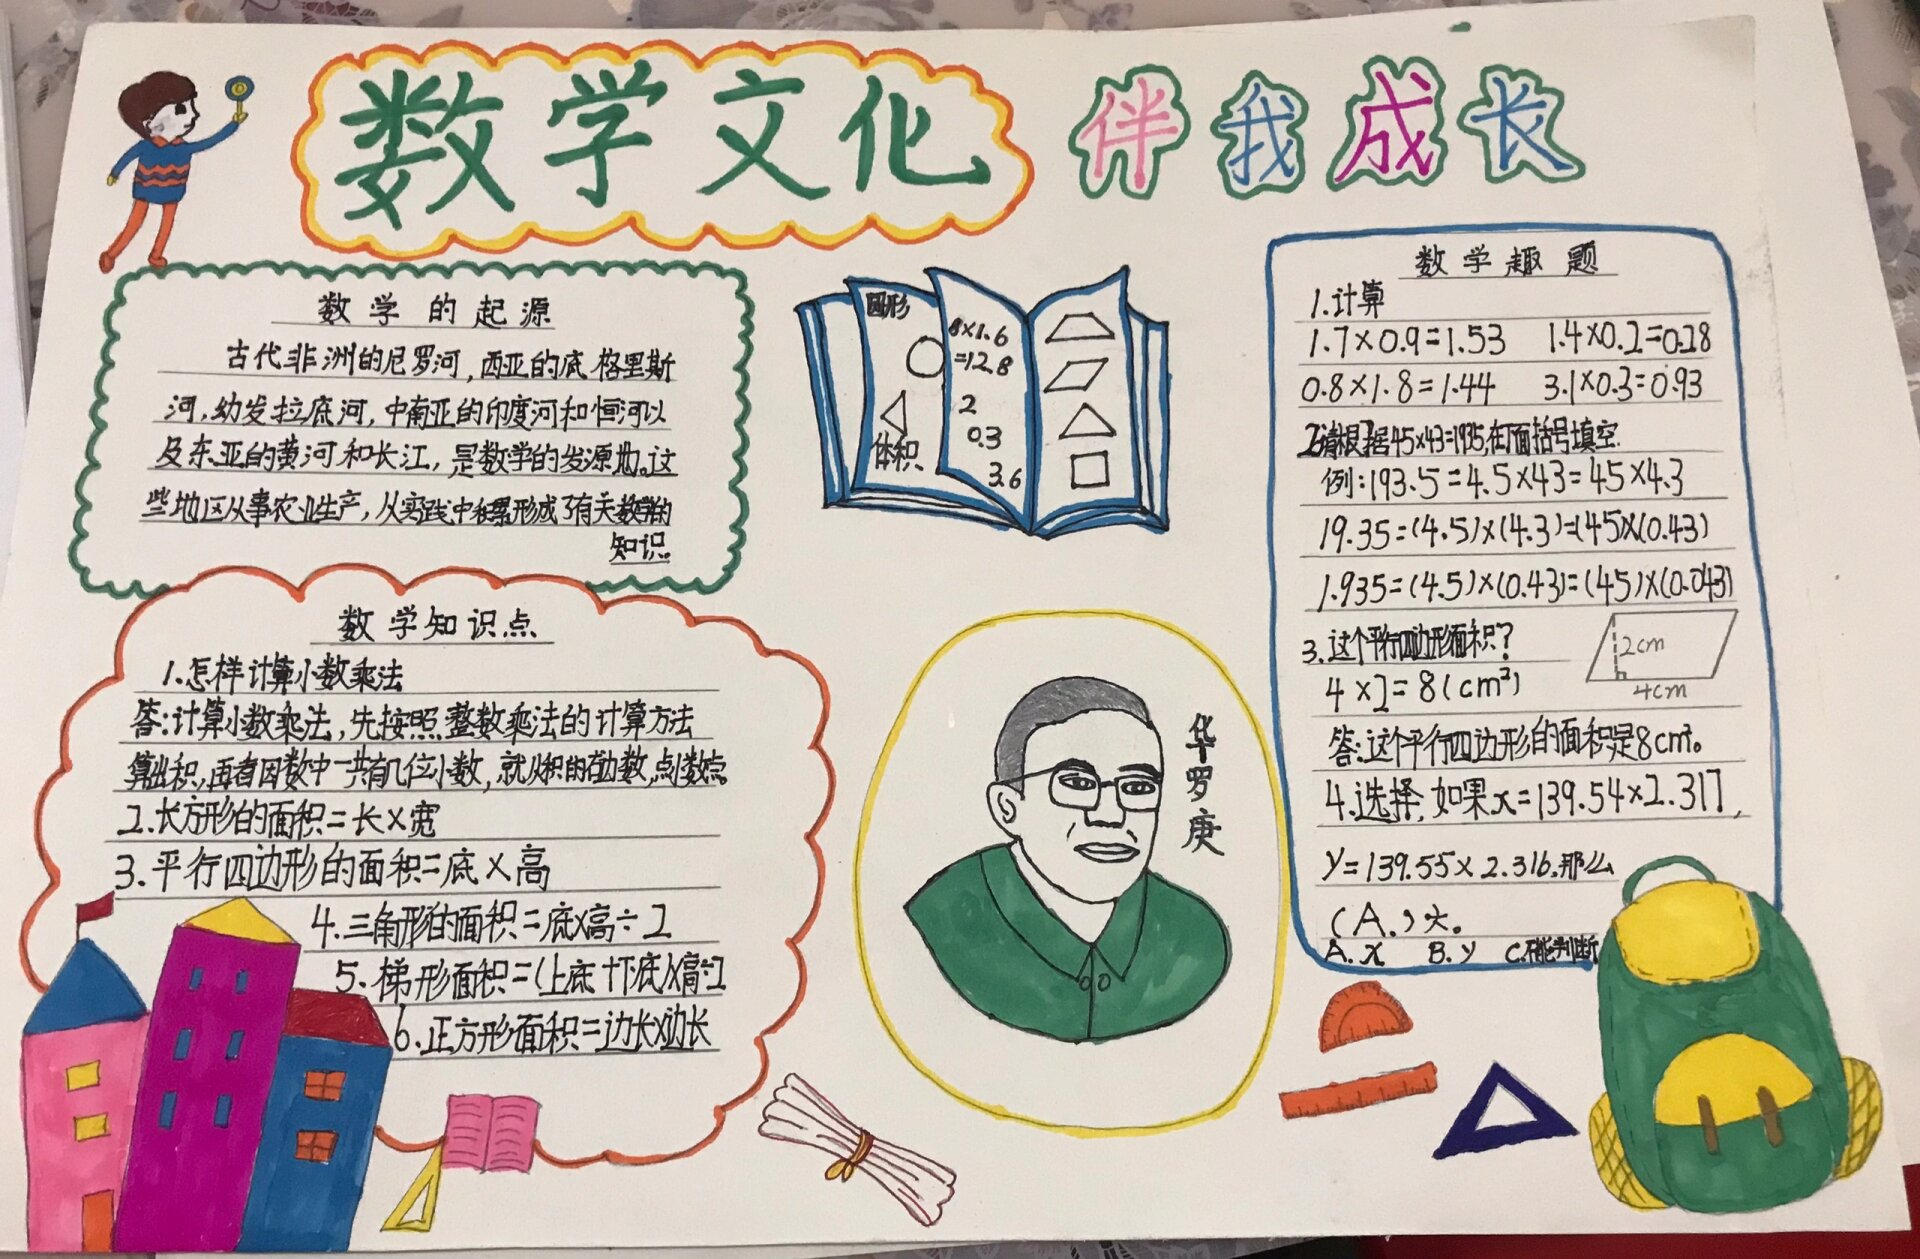 数学文化 伴我成长
数学的起源
古代非洲的尼罗河,西亚的底格里斯
河,幼发拉底河,中南亚的印度河和恒河以
及东亚的黄河和长江,是数学的发源地。这
些地区从事农业生产,从实践中积累形成了有关数学的
知识。
数学知识点
1.怎样计算小数乘法
答:计算小数乘法,先按照整数乘法的计算方法
算出积,再看因数中一共有几位小数,就从积的右边数,点小数点。
2.长方形的面积=长×宽
3.平行四边形的面积=底×高
4.三角形的面积=底×高÷2
5.梯形面积=(上底+下底)×高÷2
6.正方形面积=边长×边长
圆形
体积
8×1.6
=12.8
2
0.3
3.6
华罗庚
数学趣题
1.计算
1.7×0.9=1.53 1.4×0.2=0.28
0.8×1.8=1.44 3.1×0.3=0.93
2.请根据45×43=1935,在下面括号填空.
例:193.5=4.5×43=45×4.3
19.35=(4.5)×(4.3)=(45)×(0.43)
1.935=(4.5)×(0.43)=(45)×(0.043)
3.这个平行四边形面积?
2cm
4cm
4×2=8(cm²)
答:这个平行四边形的面积是8cm²。
4.选择,如果x=139.54×2.317,
y=139.55×2.316.那么
(A.)大。
A.x B.y C.不能判断